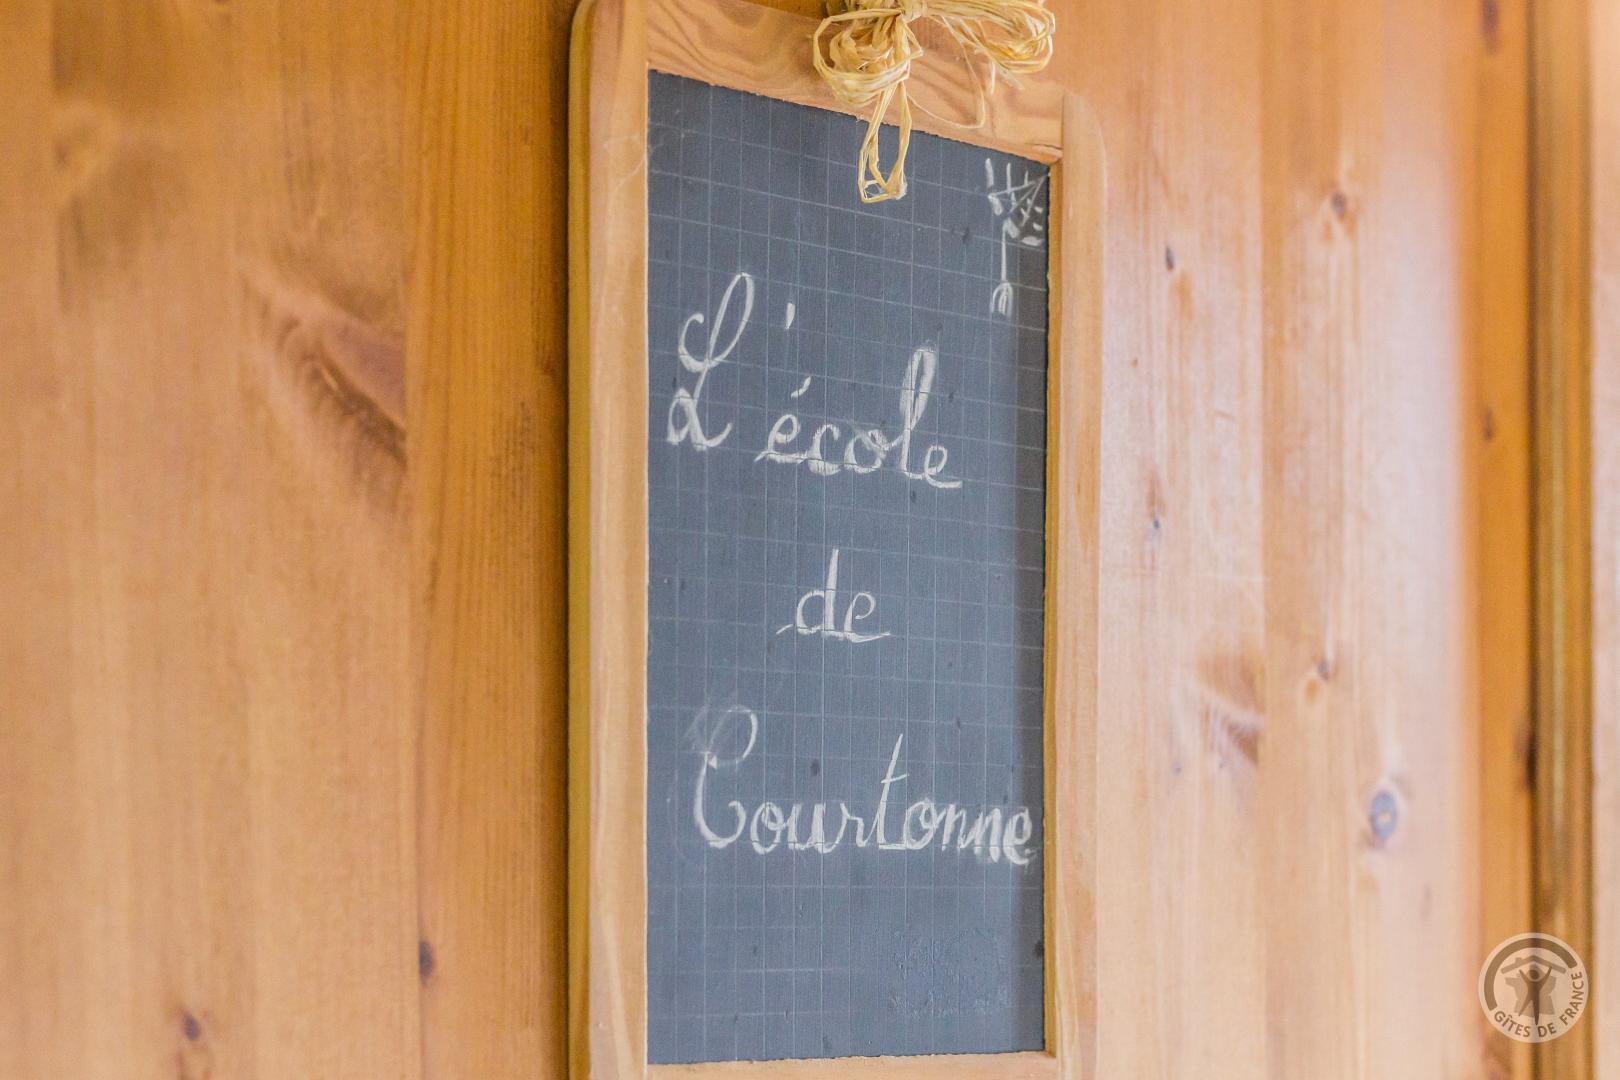 L'école
de
Courtonne
GÎTES DE FRANCE